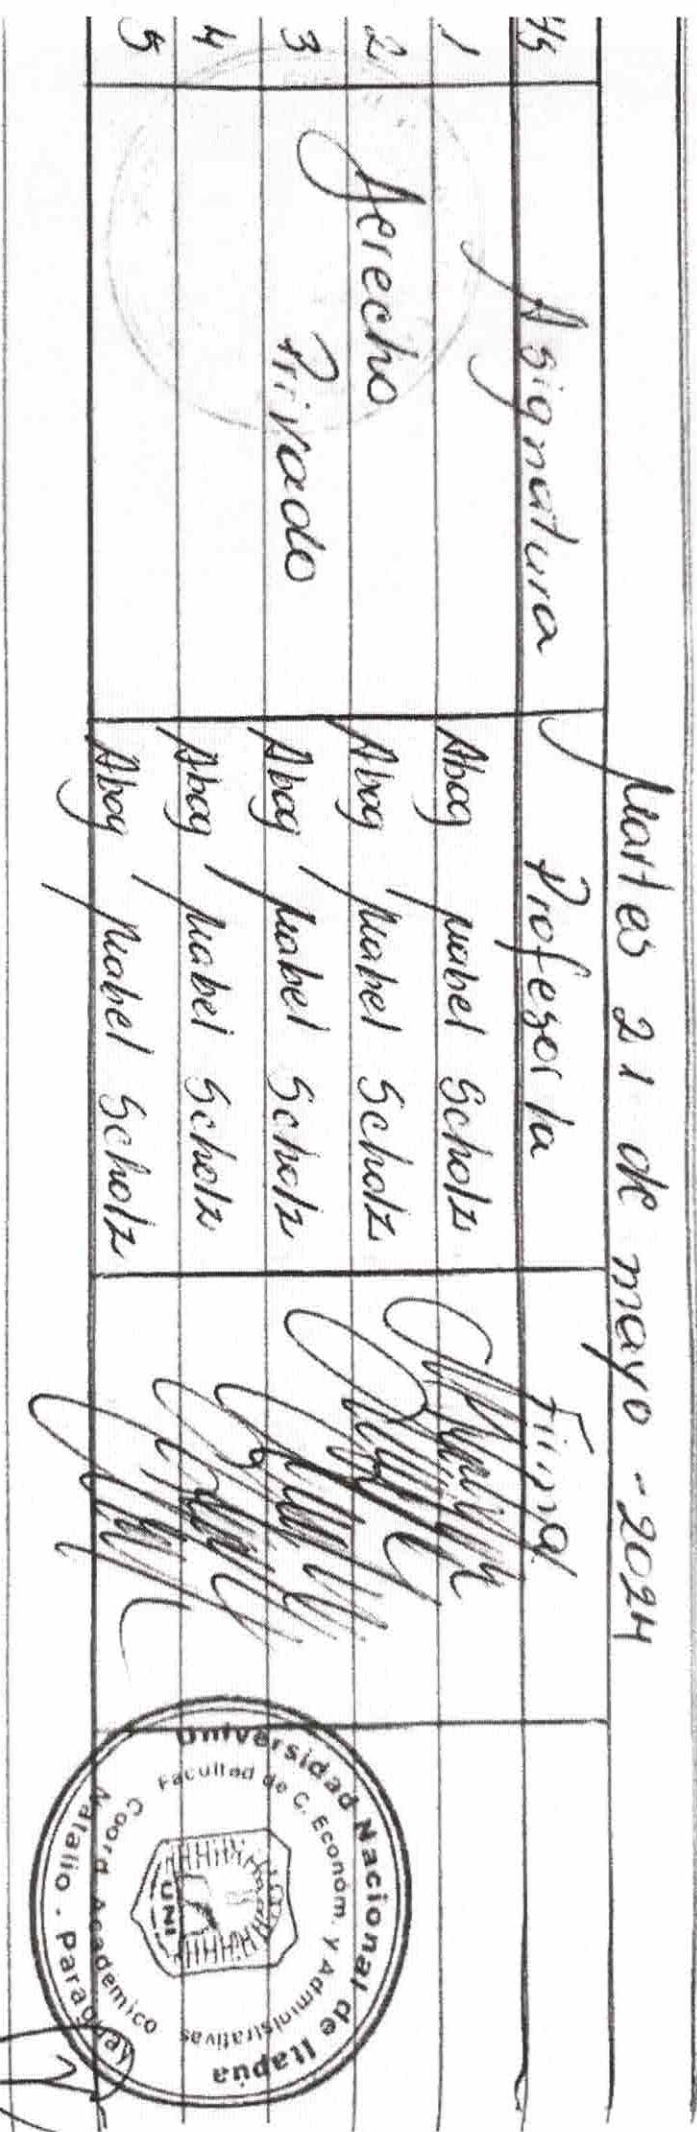 Martes 21 de mayo - 2024
H/s Asignatura Profesor/a Firma
1 Abog Mabel Scholz
2 Derecho Abog Mabel Scholz
3 Privado Abog Mabel Scholz
4 Abog Mabel Scholz
5 Abog Mabel Scholz
Universidad Nacional de Itapúa
Facultad de C. Econom. y Administrativas
UNI
Coord. Academico
Natalio . Paraguay